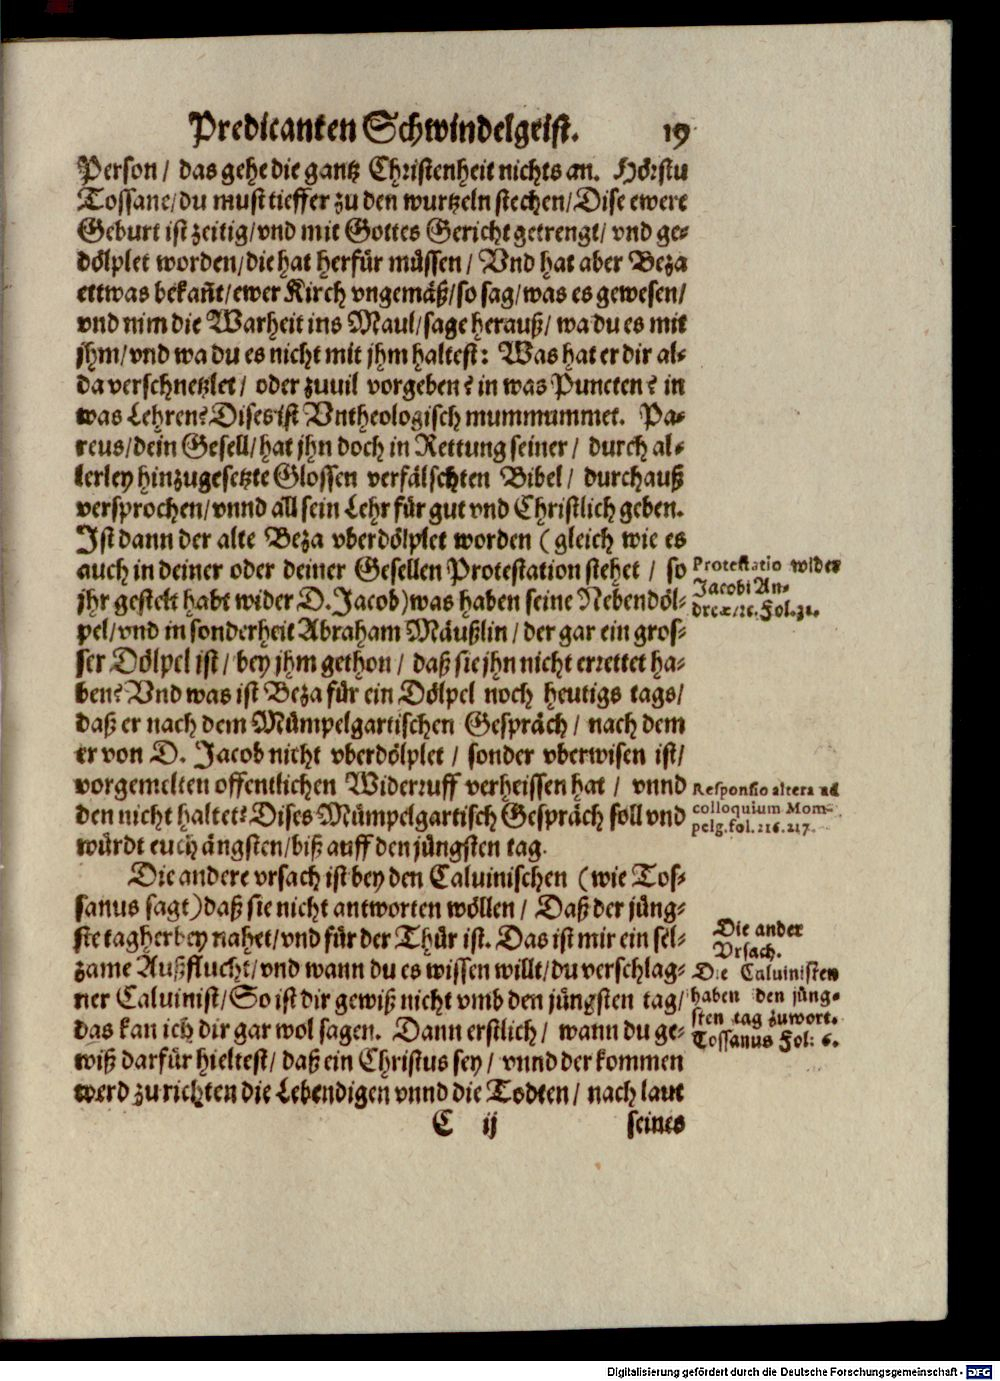 Predicanten Schwindelgeist. 19
Person / das gehe die gantz Christenheit nichts an. Hörstu
Tossane/du must tieffer zu den wurtzeln stechen/Dise ewere
Geburt ist zeitig/vnd mit Gottes Gericht getrengt/ vnd ge-
dölplet worden/die hat herfür müssen / Vnd hat aber Beza
ettwas bekañt/ewer Kirch vngemäß/so sag/was es gewesen/
vnd nim die Warheit ins Maul/sage herauß/ wa du es mit
jhm/vnd wa du es nicht mit jhm haltest: Was hat er dir al-
da verschnetzlet / oder zuuil vorgeben? in was Puncten? in
was Lehren? Dises ist Vntheologisch mummummet. Pa-
reus/dein Gesell/hat jhn doch in Rettung seiner / durch al-
lerley hinzugesetzte Glossen verfälschten Bibel / durchauß
versprochen/vnnd all sein Lehr für gut vnd Christlich geben.
Ist dann der alte Beza vberdölplet worden (gleich wie es
auch in deiner oder deiner Gesellen Protestation stehet / so
jhr gestelt habt wider D. Jacob) was haben seine Nebendöl-
pel/vnd in sonderheit Abraham Mäußlin / der gar ein gros-
ser Dölpel ist / bey jhm gethon / daß sie jhn nicht errettet ha-
ben? Vnd was ist Beza für ein Dölpel noch heutigs tags/
daß er nach dem Mümpelgartischen Gespräch / nach dem
er von D. Jacob nicht vberdölplet / sonder vberwisen ist/
vorgemelten offentlichen Widerruff verheissen hat / vnnd
den nicht haltet? Dises Mümpelgartisch Gespräch soll vnd
würdt euch ängsten/biß auff den jüngsten tag.
Die andere vrsach ist bey den Caluinischen (wie Tos-
sanus sagt) daß sie nicht antworten wöllen / Daß der jüng-
ste tag herbey nahet/vnd für der Thür ist. Das ist mir ein sel-
zame Außflucht/vnd wann du es wissen willt/du verschlag-
ner Caluinist/So ist dir gewiß nicht vmb den jüngsten tag/
das kan ich dir gar wol sagen. Dann erstlich / wann du ge-
wiß darfür hieltest / daß ein Christus sey / vnnd der kommen
werd zu richten die Lebendigen vnnd die Todten / nach laut
C ij seines
Protestatio wider
Jacobi An-
dreæ/ꝛc. Fol. 31.
Responsio altera ad
colloquium Mom-
pelg. fol. 216. 217.
Die ander
Vrsach.
Die Caluinisten
haben den jüng-
sten tag zuwort.
Tossanus Fol: 6.
Digitalisierung gefördert durch die Deutsche Forschungsgemeinschaft - DFG